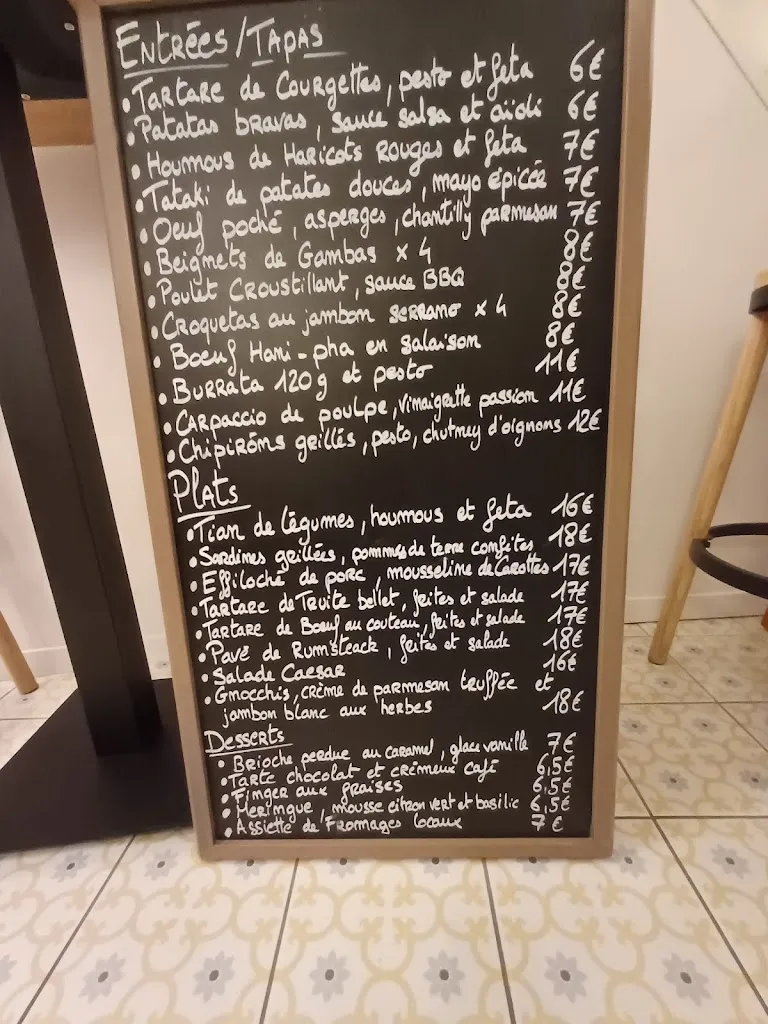 Entrées / Tapas
• Tartare de Courgettes, pesto et feta 6€
• Patatas bravas, sauce salsa et aïoli 6€
• Houmous de Haricots Rouges et feta 7€
• Tataki de patates douces, mayo épicée 7€
• Oeuf poché, asperges, chantilly parmesan 7€
• Beignets de Gambas x 4 8€
• Poulet Croustillant, sauce BBQ 8€
• Croquetas au jambon serrano x 4 8€
• Boeuf Hani-pha en salaison 8€
• Burrata 120g et pesto 11€
• Carpaccio de poulpe, vinaigrette passion 11€
• Chipirons grillés, pesto, chutney d'oignons 12€
Plats
• Tian de légumes, houmous et feta 16€
• Sardines grillées, pommes de terre confites 18€
• Effiloché de porc, mousseline de Carottes 17€
• Tartare de Truite bellet, frites et salade 17€
• Tartare de Boeuf au couteau, frites et salade 17€
• Pavé de Rumsteack, frites et salade 18€
• Salade Caesar 16€
• Gnocchis, crème de parmesan truffée et
jambon blanc aux herbes 18€
Desserts
• Brioche perdue au caramel, glace vanille 7€
• Tarte chocolat et crémeux café 6,5€
• Finger aux fraises 6,5€
• Meringue, mousse citron vert et basilic 6,5€
• Assiette de Fromages locaux 7€